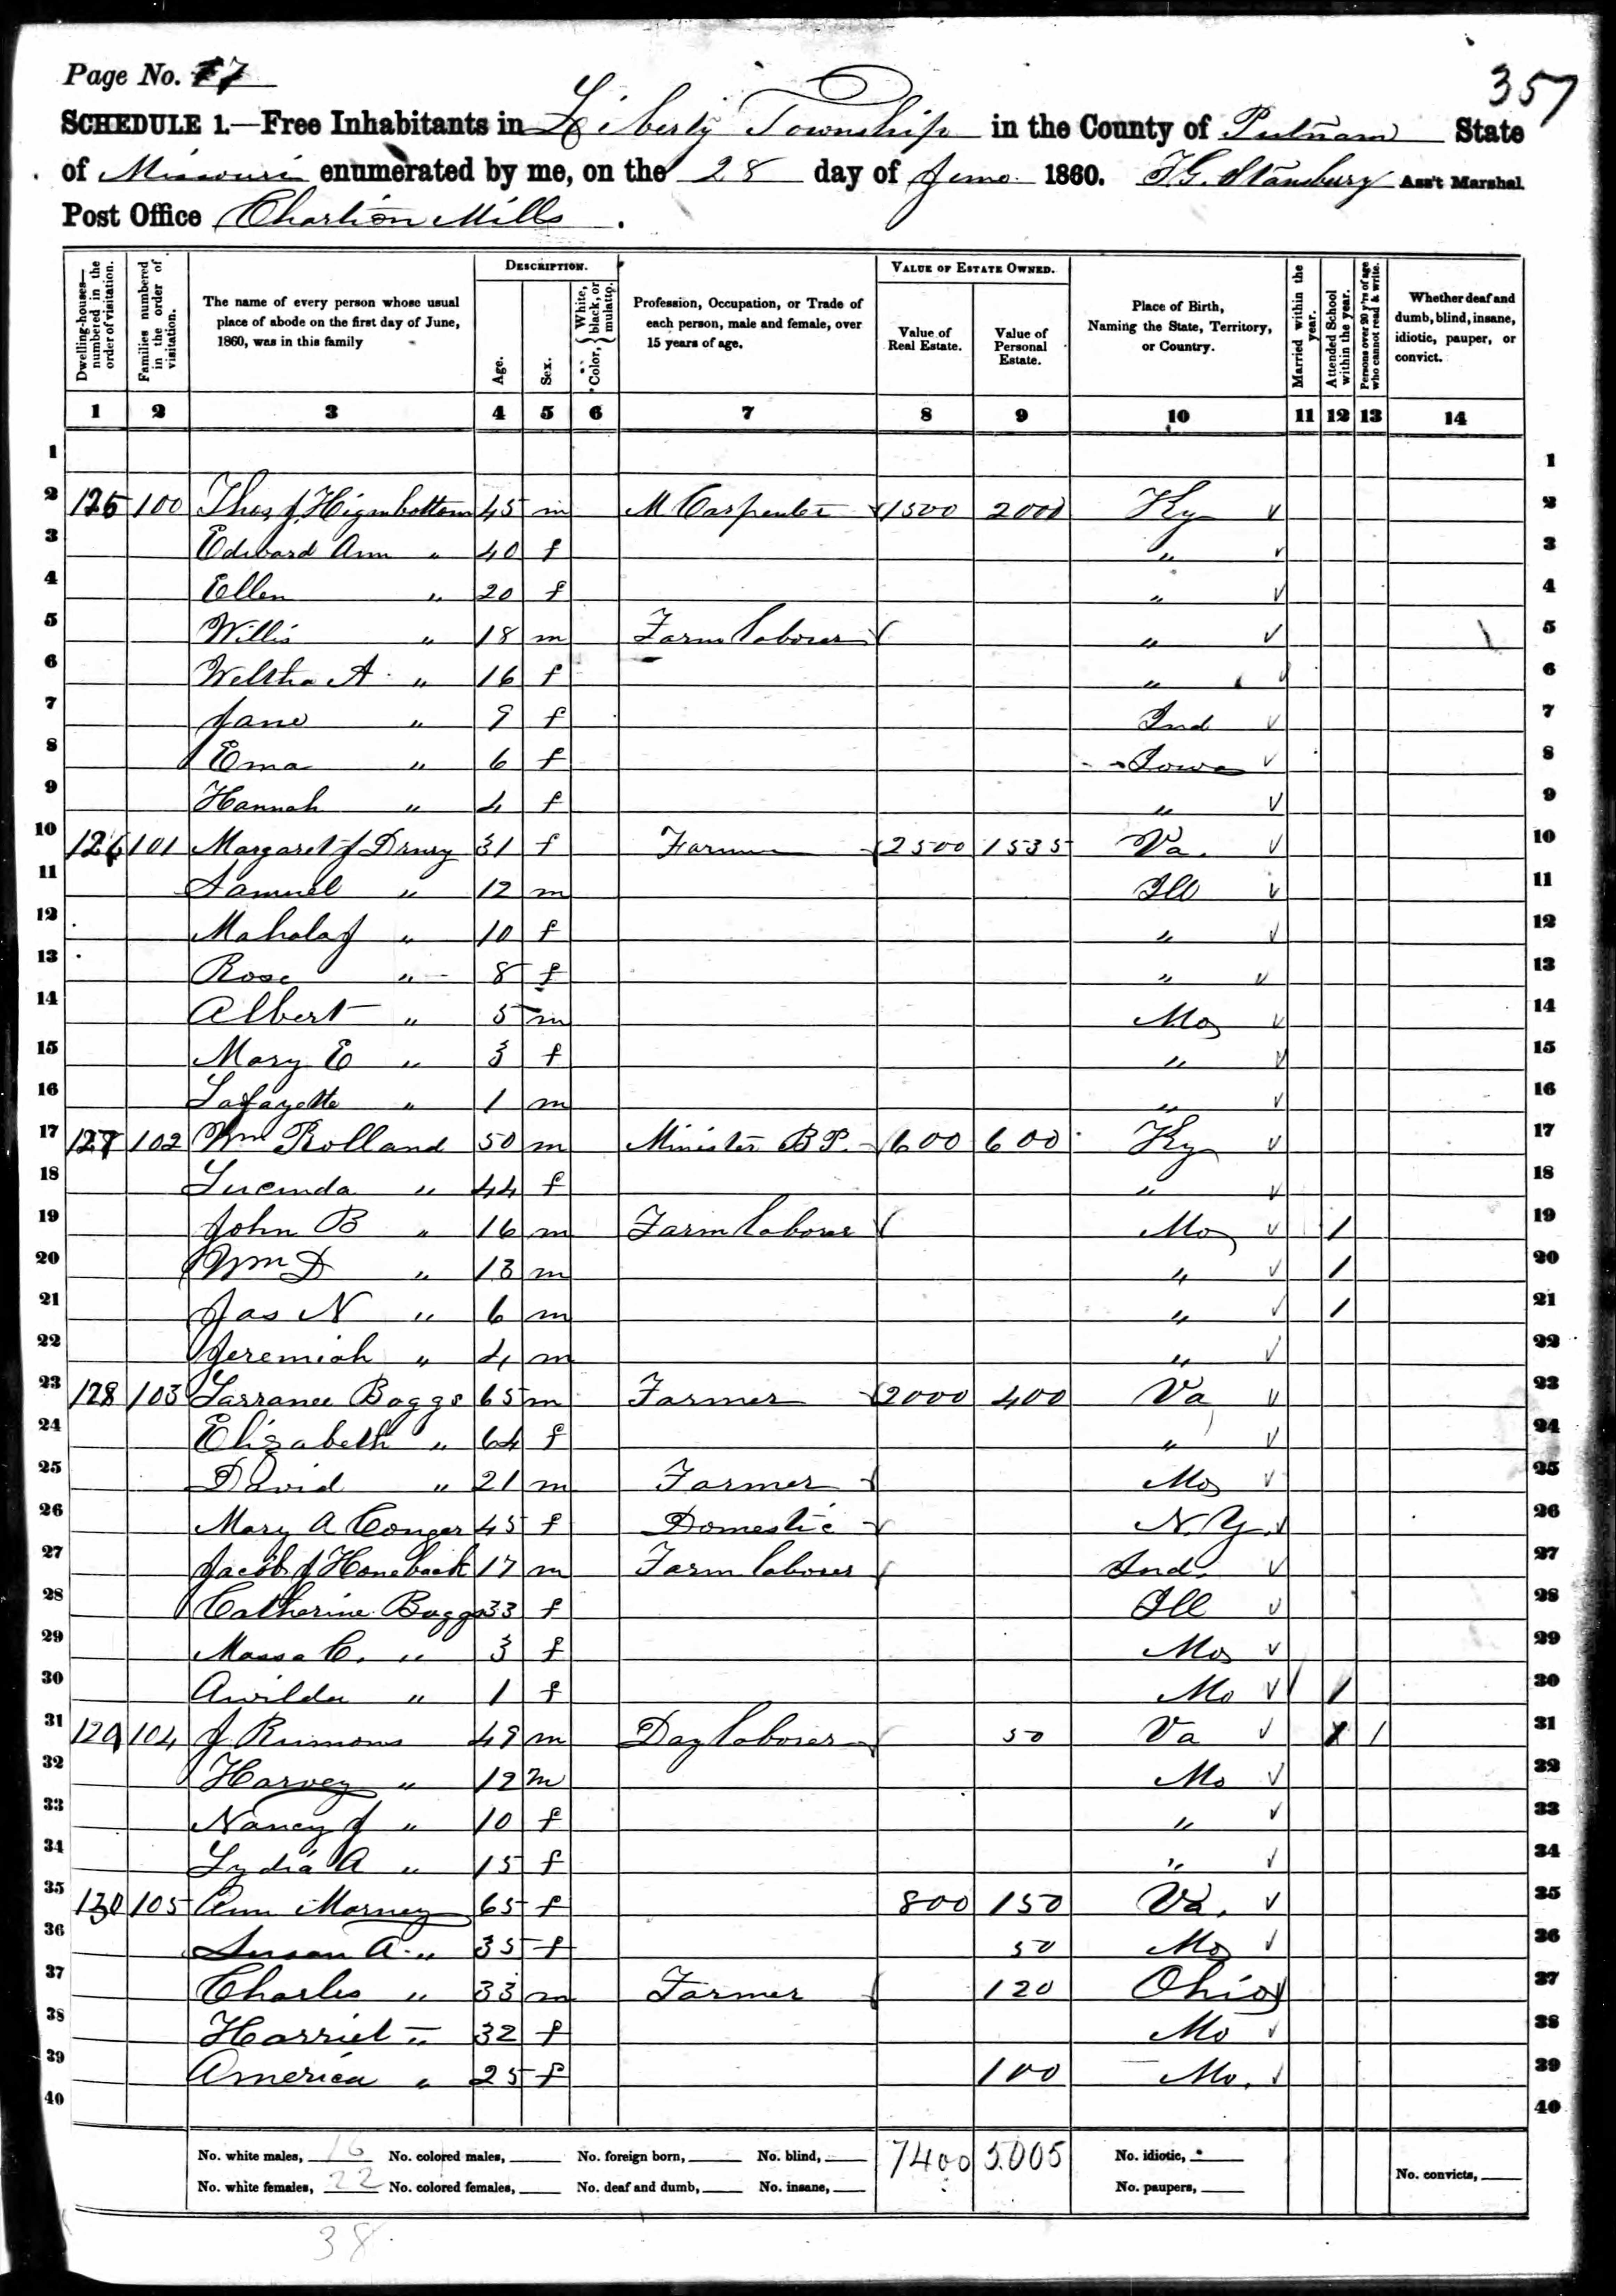 Page No. 77
357
SCHEDULE 1.—Free Inhabitants in Liberty Township in the County of Putnam State
of Missouri enumerated by me, on the 28 day of June 1860. T.G. Stansbury Ass't Marshal.
Post Office Chariton Mills.
DESCRIPTION. VALUE OF ESTATE OWNED.
Dwelling-houses—numbered in the order of visitation. Families numbered in the order of visitation. The name of every person whose usual place of abode on the first day of June, 1860, was in this family Age. Sex. Color, { White, black, or mulatto. Profession, Occupation, or Trade of each person, male and female, over 15 years of age. Value of Real Estate. Value of Personal Estate. Place of Birth, Naming the State, Territory, or Country. Married within the year. Attended School within the year. Persons over 20 y'rs of age who cannot read & write. Whether deaf and dumb, blind, insane, idiotic, pauper, or convict.
1 2 3 4 5 6 7 8 9 10 11 12 13 14
1 1
2 125 100 Thos J Higinbottom 45 m M Carpenter 1500 2000 Ky 2
3 Edward Ann " 40 f " 3
4 Ellen " 20 f " 4
5 Willis " 18 m Farm laborer " \ 5
6 Weltha A " 16 f " 6
7 Jane " 9 f Ind 7
8 Ema " 6 f Iowa 8
9 Hannah " 4 f " 9
10 126 101 Margaret J Drury 31 f Farmer 2500 1535 Va. 10
11 Samuel " 12 m Ill 11
12 Mahala J " 10 f " 12
13 Rose " 8 f " 13
14 Albert " 5 m Mo 14
15 Mary E " 3 f " 15
16 Lafayette " 1 m " 16
17 127 102 Wm Rolland 50 m Minister B P. 600 600 Ky 17
18 Lucinda " 44 f " 18
19 John B " 16 m Farm laborer Mo / 19
20 Wm D " 13 m " / 20
21 Jas N " 6 m " / 21
22 Jeremiah " 4 m " 22
23 128 103 Larrance Boggs 65 m Farmer 2000 400 Va 23
24 Elizabeth " 64 f " 24
25 David " 21 m Farmer Mo 25
26 Mary A Conger 45 f Domestic N.Y. 26
27 Jacob J Honeback 17 m Farm laborer Ind. 27
28 Catherine Boggs 33 f Ill 28
29 Massa C. " 3 f Mo 29
30 Awilda " 1 f Mo / 30
31 129 104 J 49 m Day laborer 50 Va / 31
32 Harvey " 12 m Mo 32
33 Nancy J " 10 f " 33
34 Lydia A " 15 f " 34
35 130 105 Ann Morney 65 f 800 150 Va. 35
36 Susan A " 35 f 50 Mo 36
37 Charles " 33 m Farmer 120 Ohio 37
38 Harriet " 32 f Mo 38
39 America " 25 f 100 Mo. 39
40 40
No. white males, 16 No. colored males, No. foreign born, No. blind, 7400 5.005 No. idiotic,
No. white females, 22 No. colored females, No. deaf and dumb, No. insane, No. paupers, No. convicts,
38